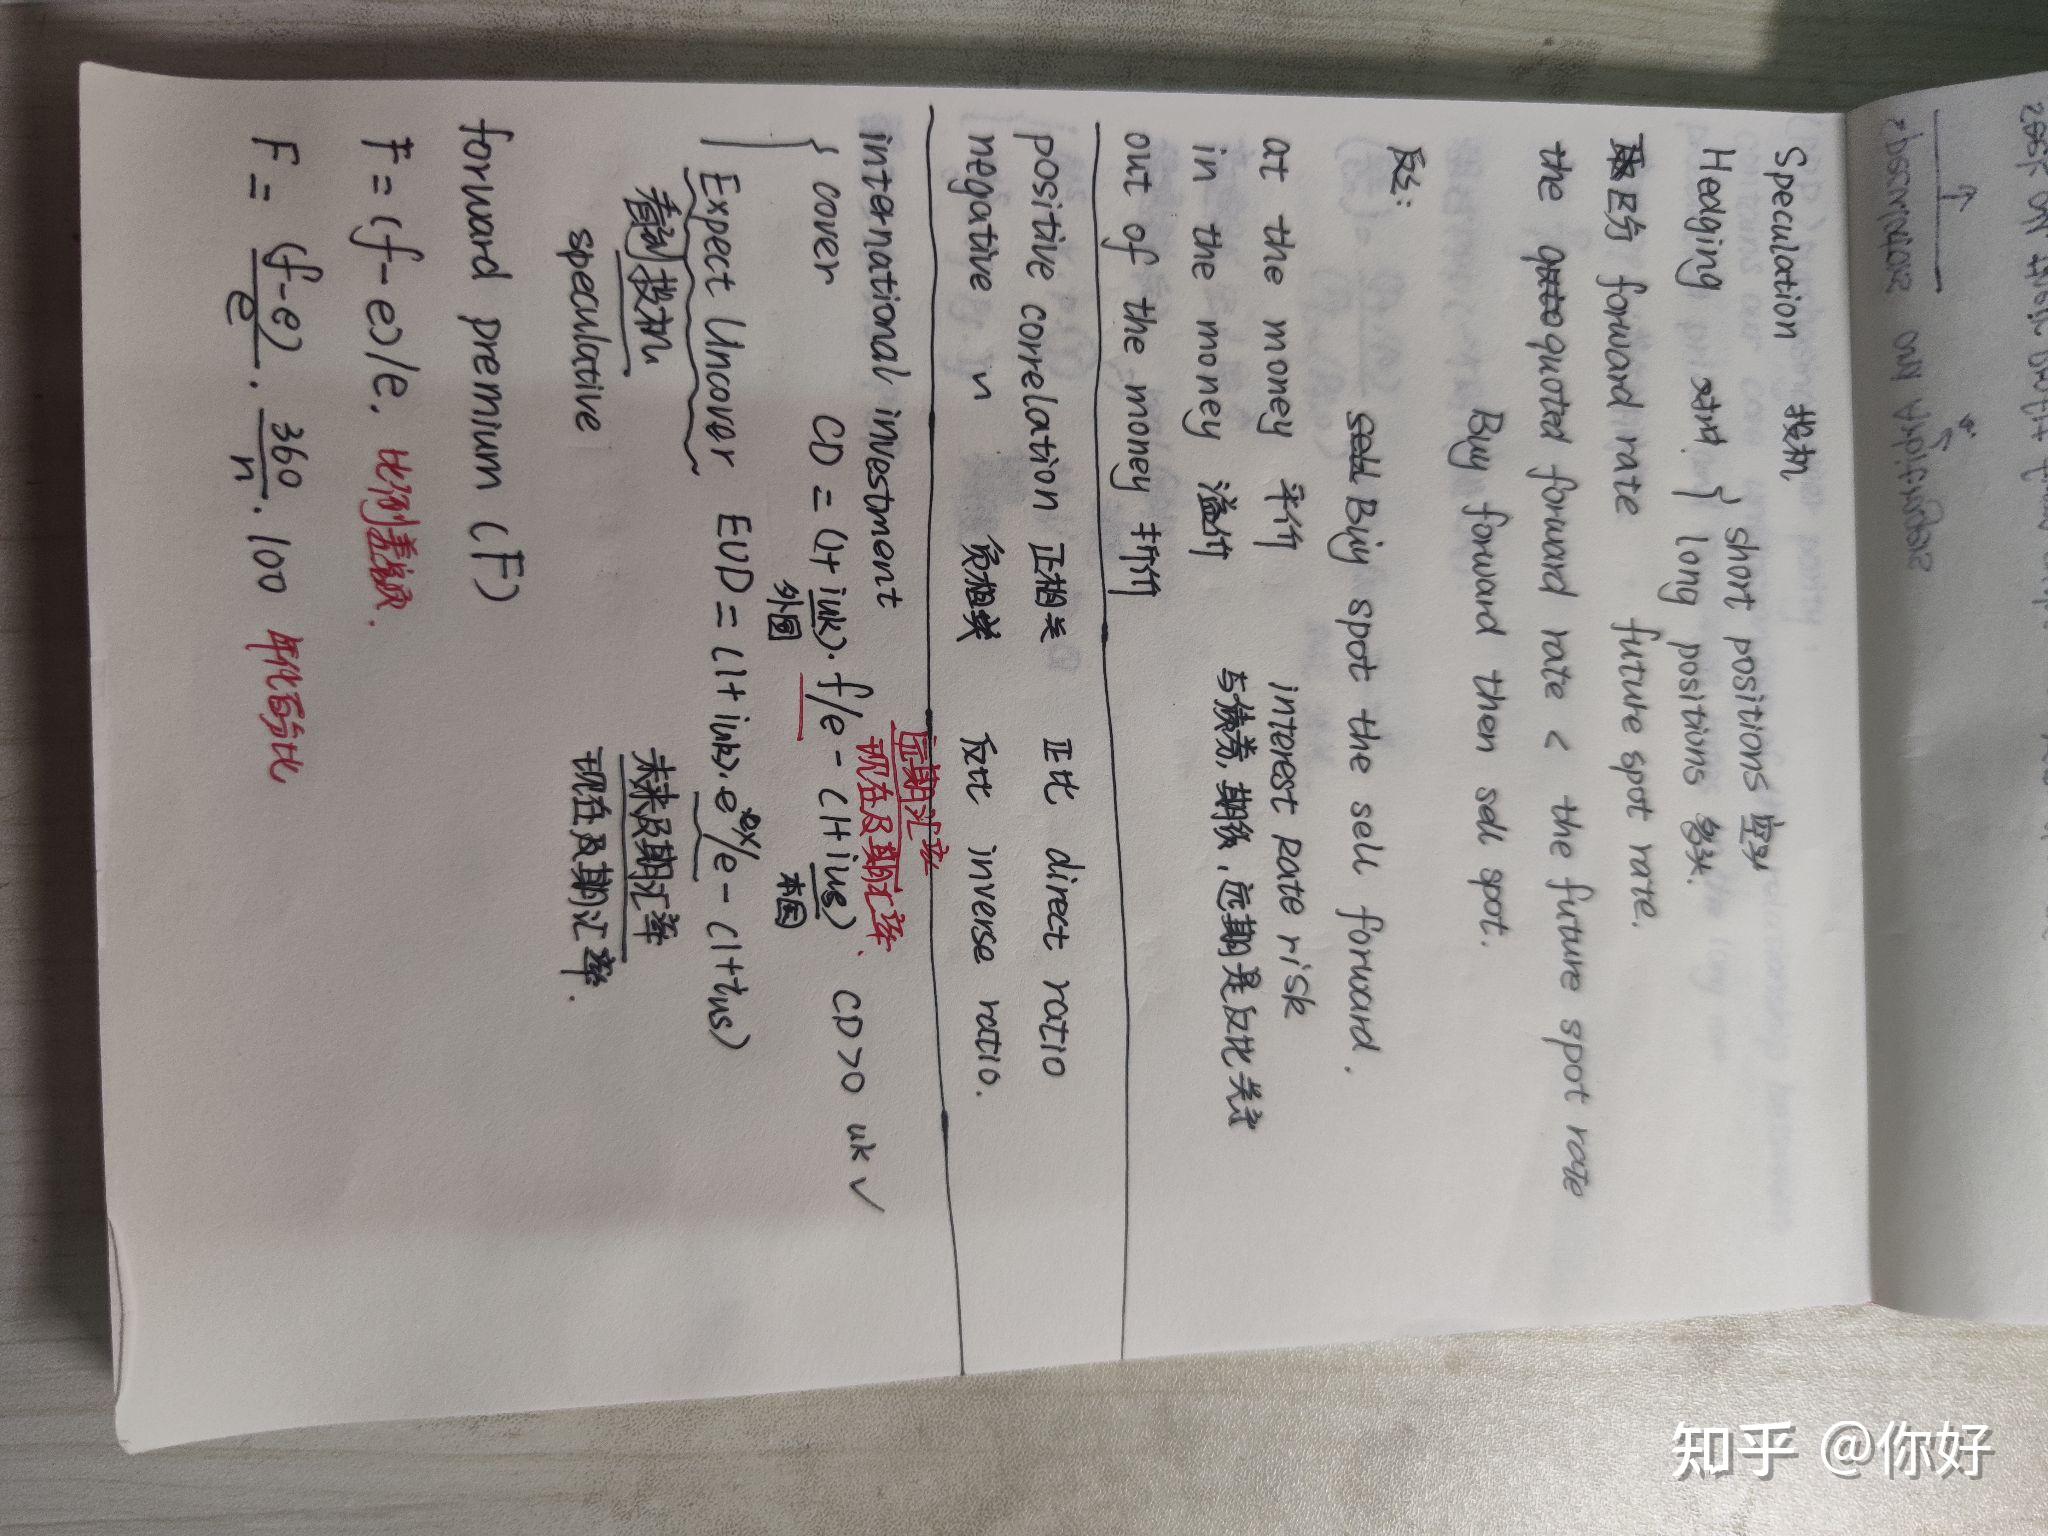 Speculation 投机
Hedging 对冲 { short positions 空头
long positions 多头.
区分 forward rate future spot rate.
the quoted forward rate < the future spot rate
Buy forward then sell spot.
反之:
Buy spot the sell forward.
at the money 平价 interest rate risk
in the money 溢价 与债券, 期货, 远期是反比关系
out of the money 折价
positive correlation 正相关 正比 direct ratio
negative ~ 负相关 反比 inverse ratio.
international investment
远期汇率
现在及期汇率.
{ cover CD = (1+iuk)·f/e - (1+ius) CD>0 uk √
外国 本国
Expect Uncover EUD = (1+iuk)·e^ex/e - (1+ius)
看涨投机 未来及期汇率
speculative 现在及期汇率.
forward premium (F)
F = (f-e)/e. 比例差额.
F = (f-e)/e · 360/n · 100 年化百分比
知乎 @你好